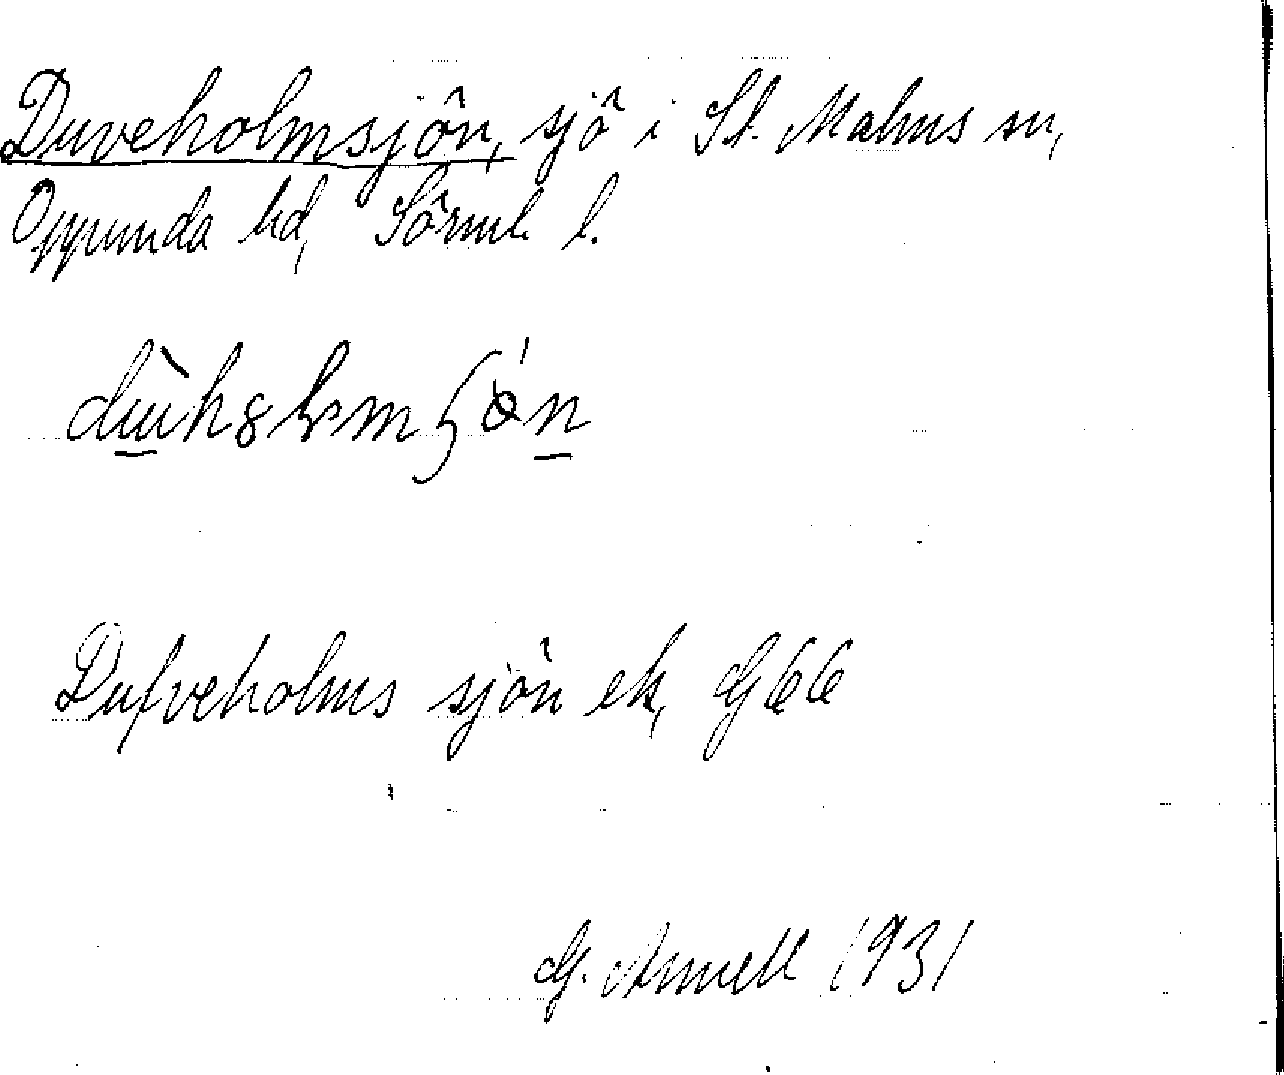 Duveholmsjön, sjö i St. Malms sn,
Oppunda hd, Sörml. l.
Dufveholms sjön ek, G66
G. Armell 1931